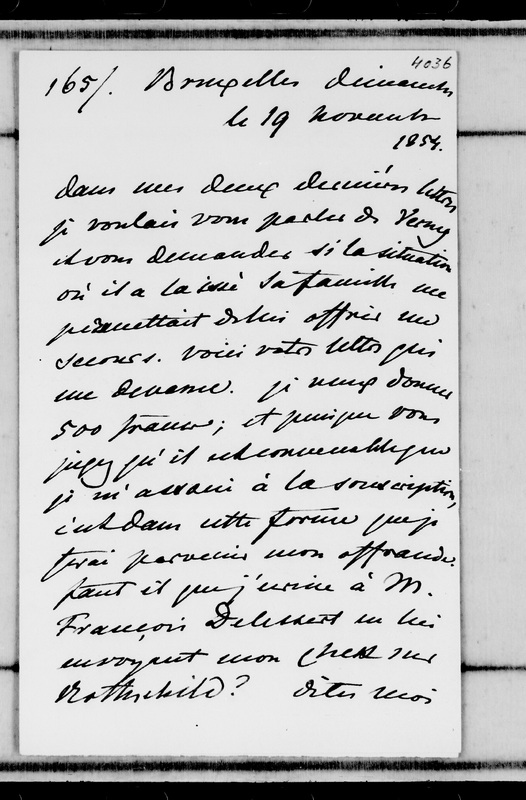 4036
165/. Bruxelles dimanche
le 19 novembre
1854.
dans mes deux dernières lettres
je voulais vous parler de Verny
et vous demander si la situation
où il a laissé sa famille me
permettait de lui offrir un
secours. voici votre lettre qui
me devance. je veux donner
500 francs; et puisque vous
jugez qu'il est convenable que
je m'associe à la souscription,
c'est dans cette forme que je
ferai parvenir mon offrande.
faut il que j'écrive à M.
François Delessert en lui
envoyant mon check sur
Rothschild? dites moi